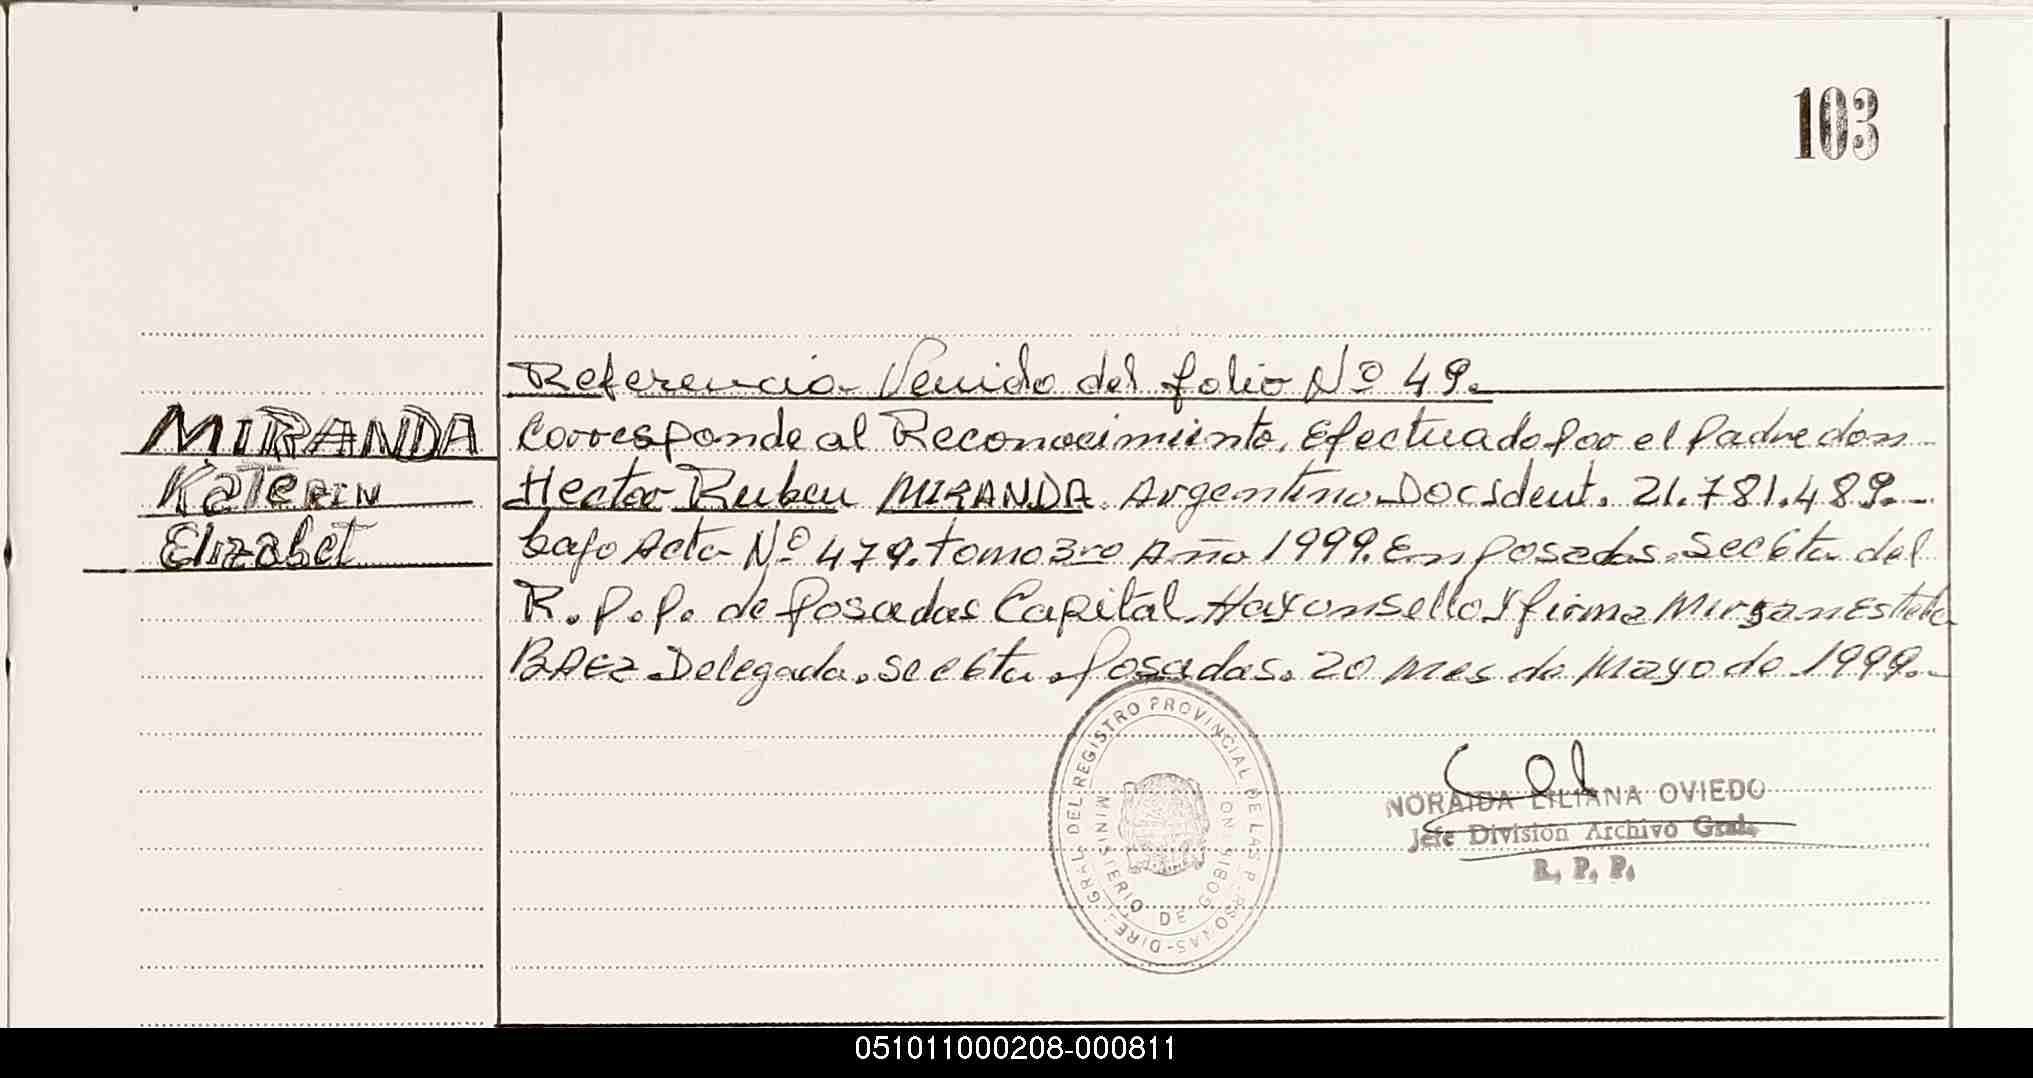 103
Referencia Venido del folio Nº 49.
MIRANDA
Katerin
Elizabet
Corresponde al Reconocimiento, Efectuado por el Padre don
Hector Ruben MIRANDA. Argentino Doc Ident. 21.781.489.-
bajo Acta Nº 479. tomo 3ro Año 1999. En Posadas. Sec 6ta del
R.P.P. de Posadas Capital. Hay un sello y firma Miryan Estela
BAEZ Delegada. Sec 6ta Posadas. 20 Mes de Mayo de 1999.-
GRAL. DEL REGISTRO PROVINCIAL DE LAS PERSONAS-DIREC
MINISTERIO DE GOBIERNO
NORAIDA LILIANA OVIEDO
Jefe División Archivo Gral.
R. P. P.
051011000208-000811